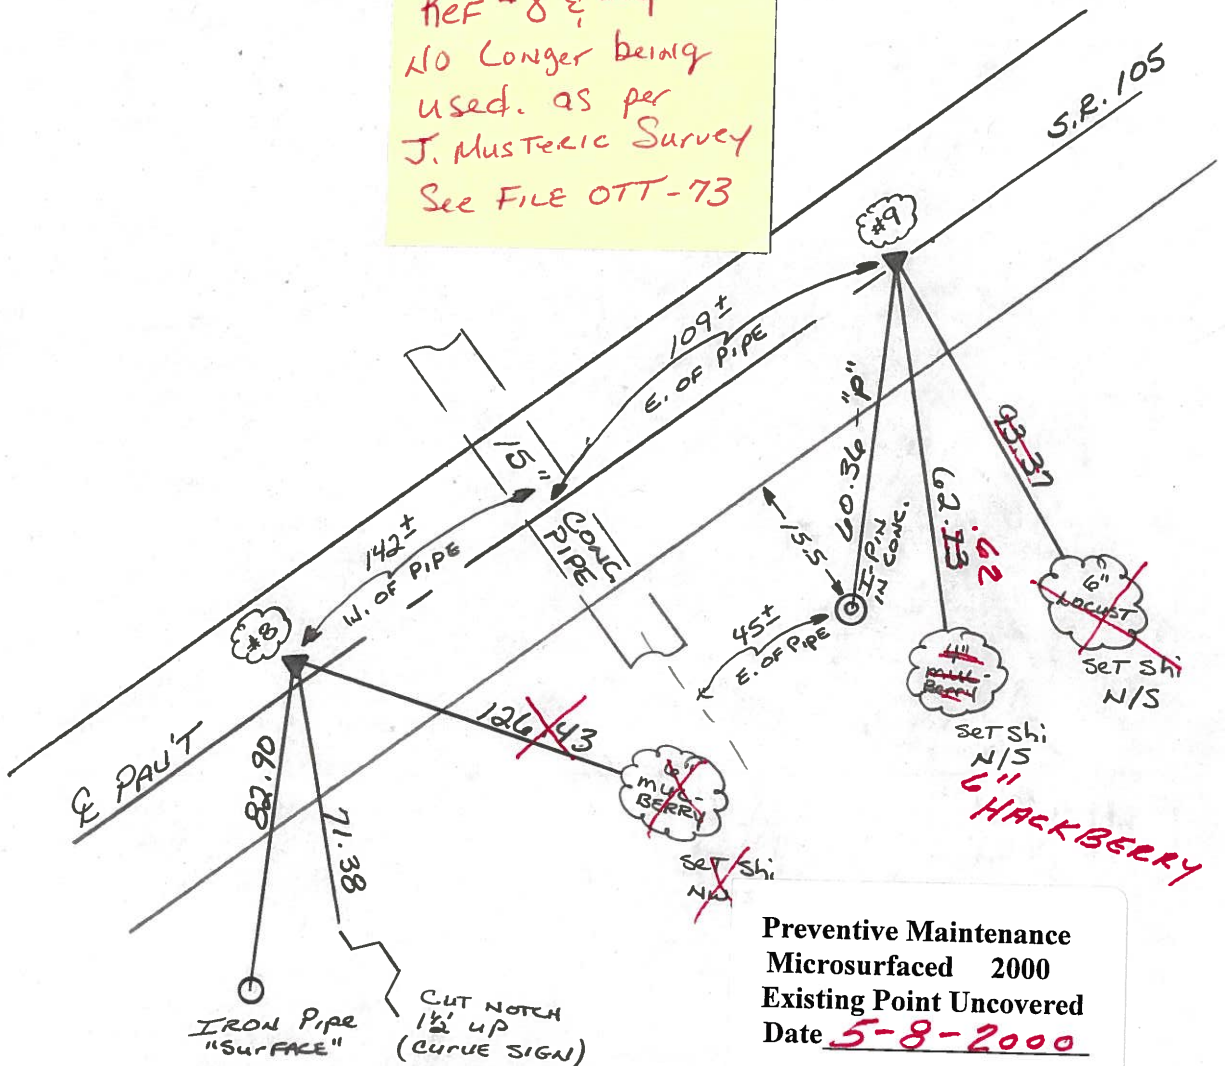 Ref #8 &
No Longer being
used. as per
J. Musteric Survey
See FILE OTT-73
S.R. 105
#9
109±
E. OF PIPE
15"
142±
W. OF PIPE
CONC.
PIPE
60.36 - "P"
I-PIN
IN CONC.
15.5
45±
E. OF PIPE
62.73
.62
93.37
6"
LOCUST
SET Shi
N/S
4"
MUL-
BERRY
SET Shi
N/S
6"
HACKBERRY
#8
℄ PAV'T
126.43
6"
MUL-
BERRY
SET Shi
NW
82.90
71.38
IRON PIPE
"SURFACE"
CUT NOTCH
1½' UP
(CURVE SIGN)
Preventive Maintenance
Microsurfaced 2000
Existing Point Uncovered
Date 5-8-2000